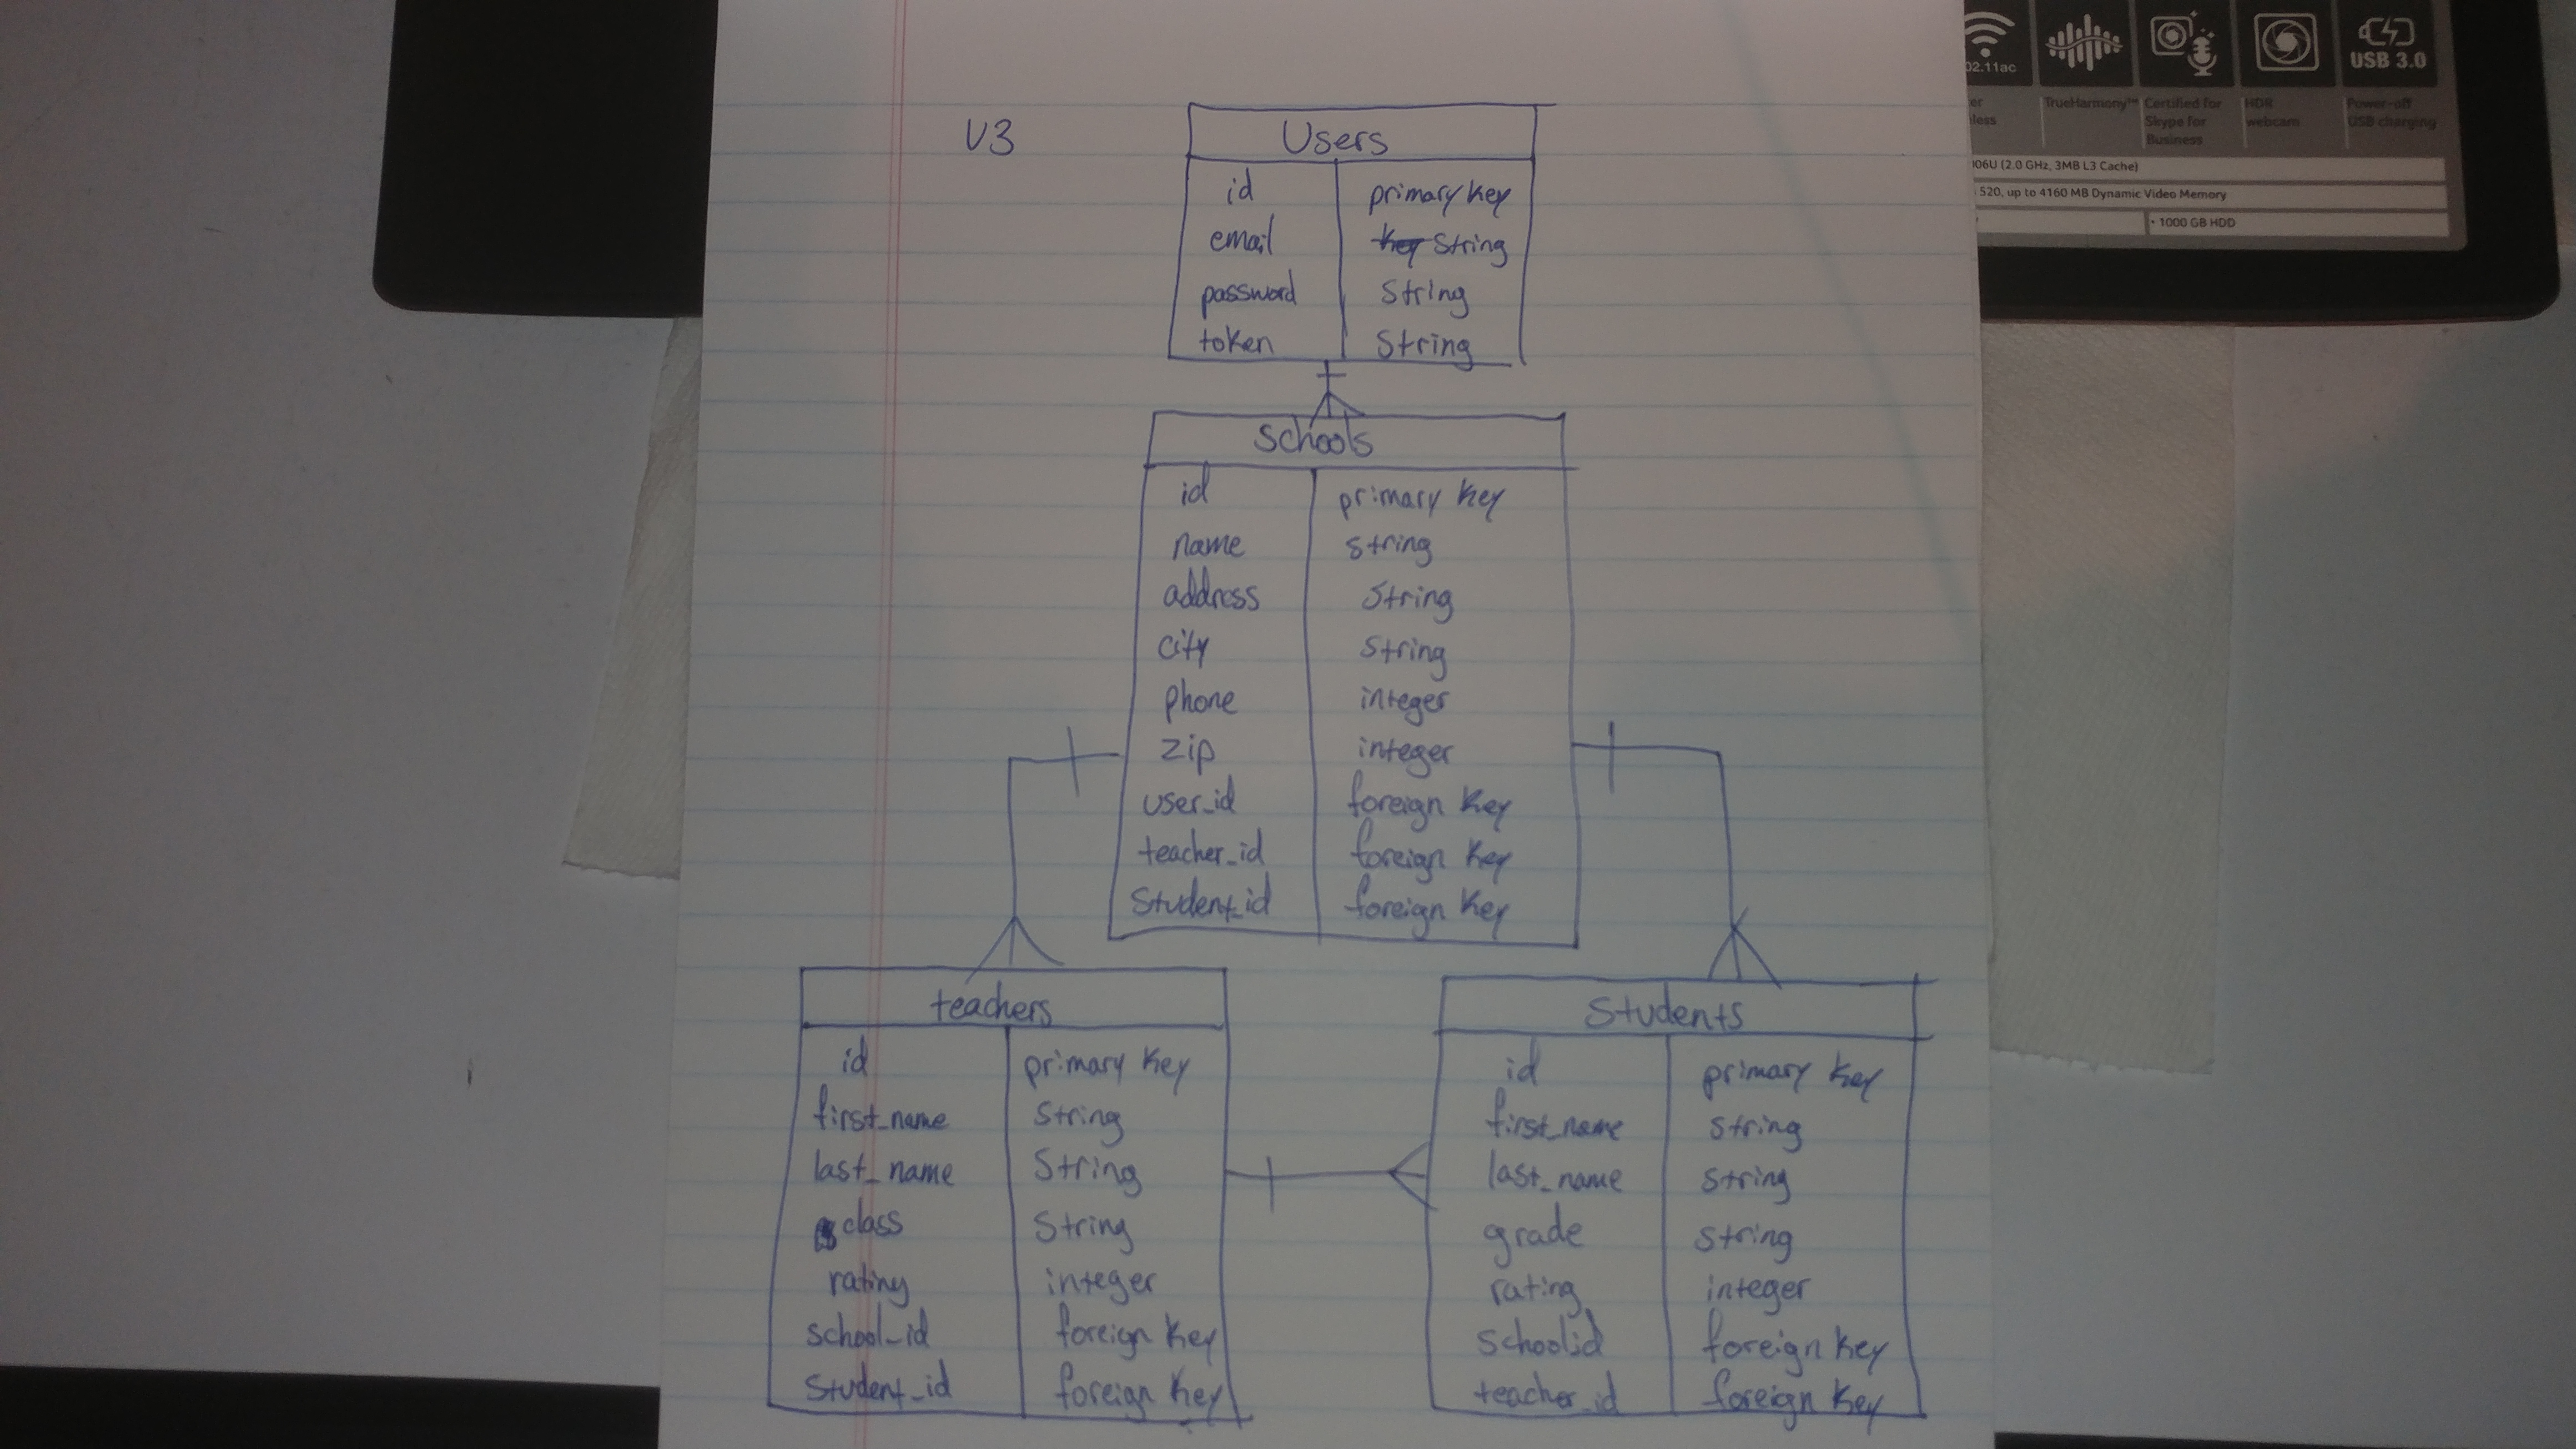 V3
Users
id primary key
email key String
password String
token String
schools
id primary key
name string
address string
city string
phone integer
zip integer
user_id foreign key
teacher_id foreign key
Student_id foreign key
teachers
id primary key
first_name String
last_name String
class String
rating integer
school_id foreign key
Student_id foreign key
Students
id primary key
first_name string
last_name string
grade string
rating integer
schoolid foreign key
teacher_id foreign key
02.11ac
USB 3.0
less
TrueHarmony™
Certified for
Skype for
Business
HDR
webcam
Power-off
USB charging
06U (2.0 GHz, 3MB L3 Cache)
520, up to 4160 MB Dynamic Video Memory
• 1000 GB HDD